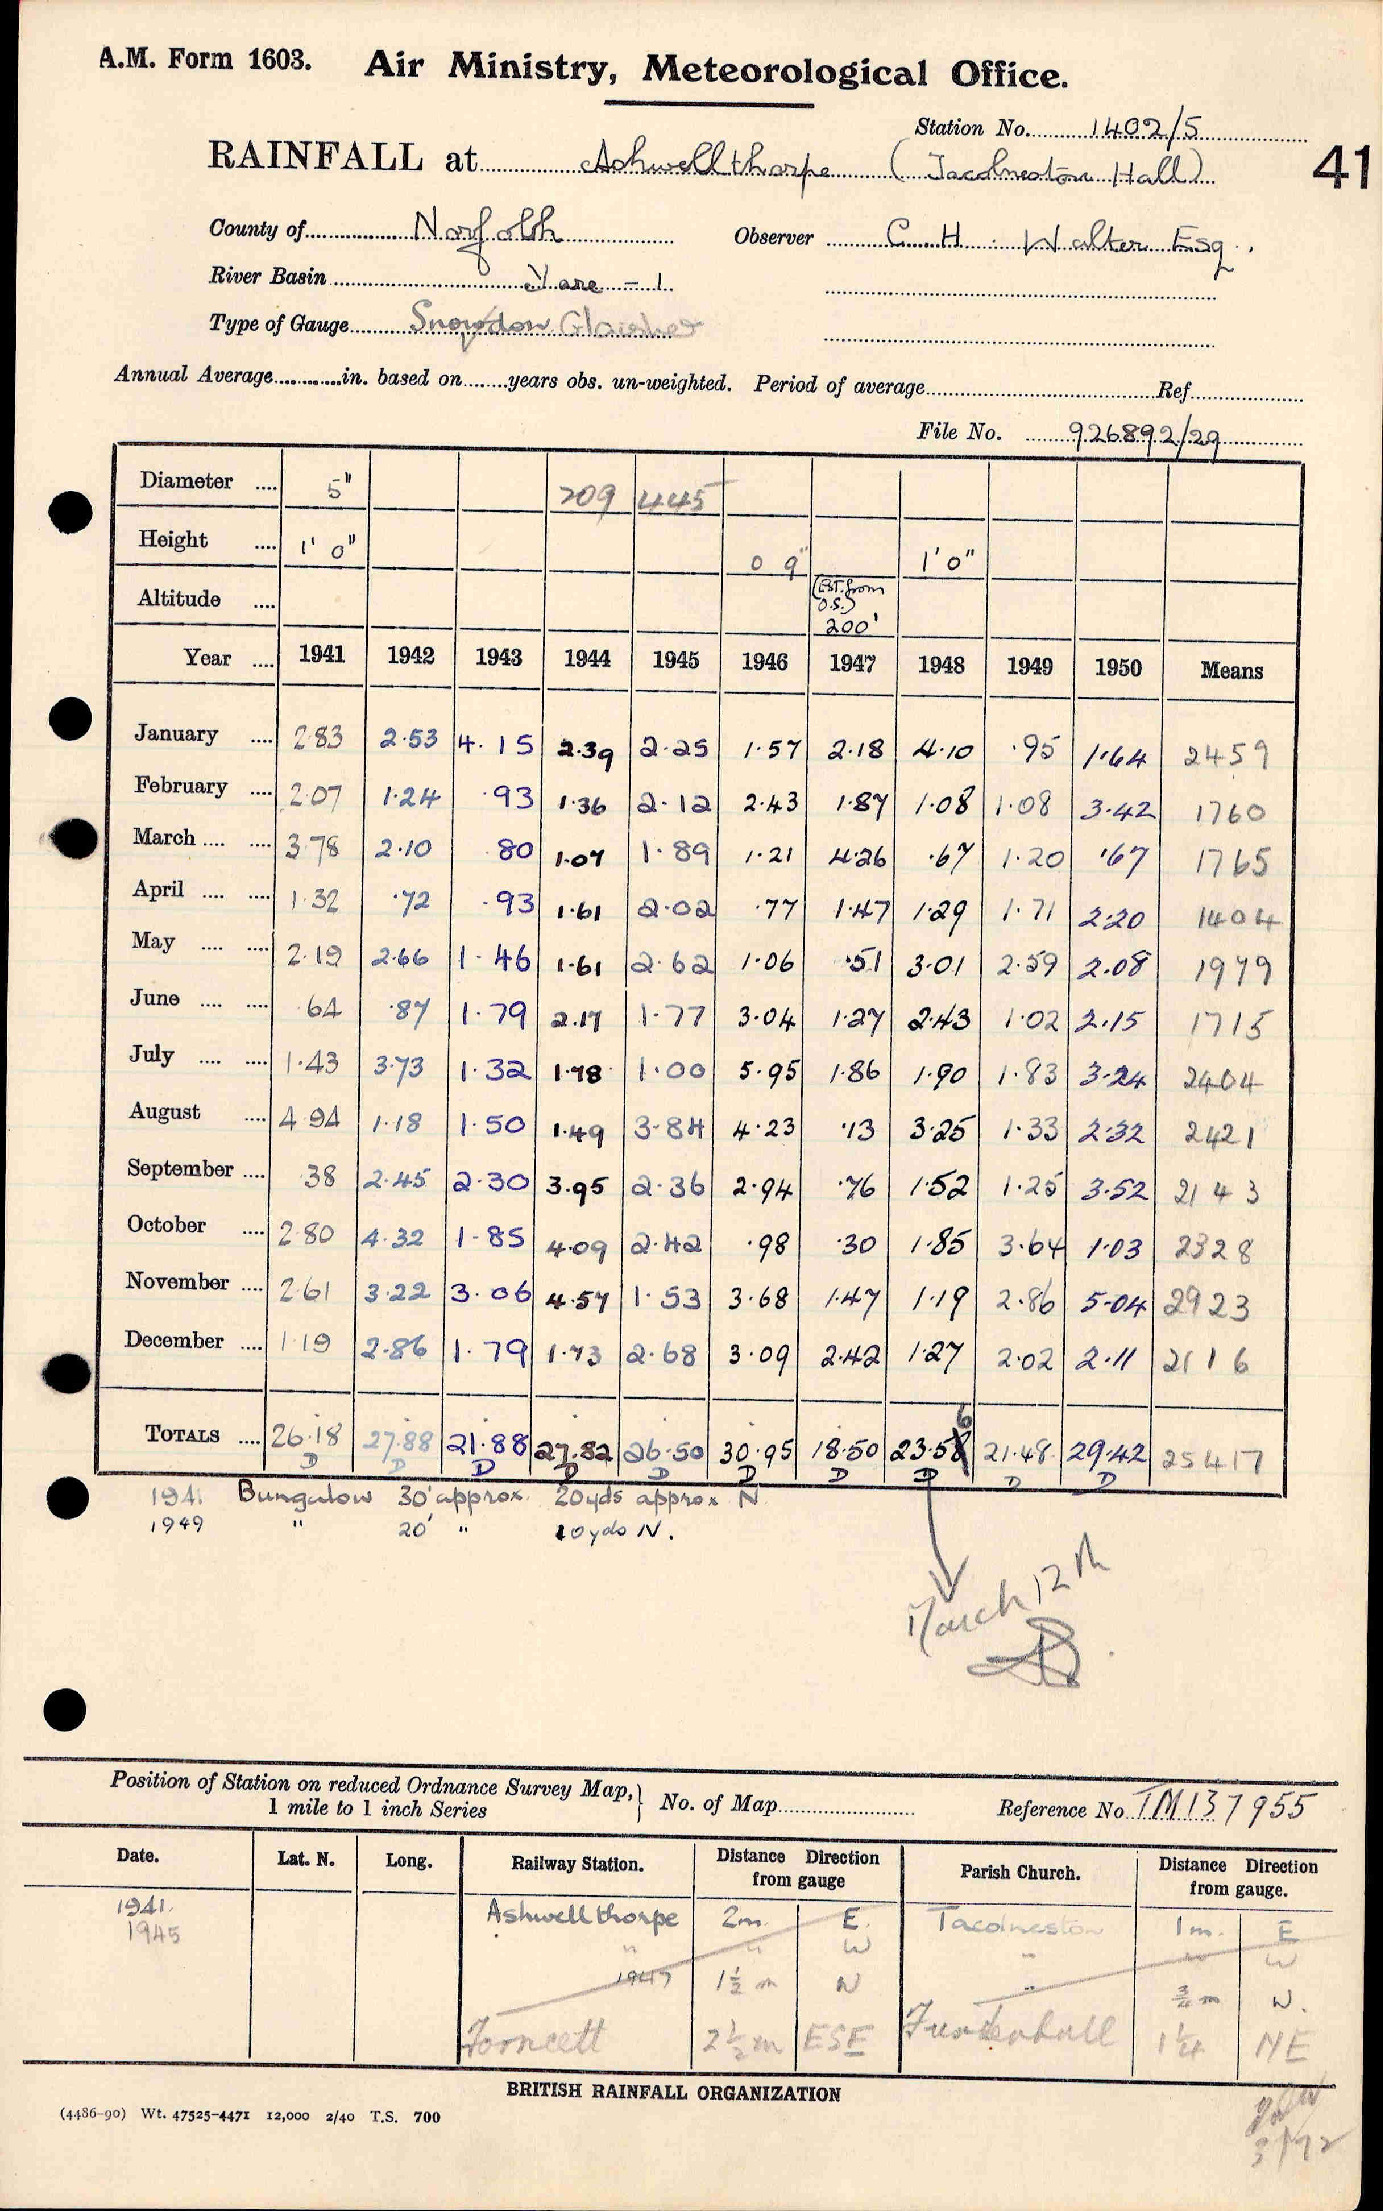 A.M. Form 1603. Air Ministry, Meteorological Office.
Station No. 1402/5
RAINFALL at Ashwellthorpe (Tacolneston Hall) 41
County of Norfolk Observer C. H. Walter Esq.
River Basin Yare - 1
Type of Gauge Snowdon Glaisher
Annual Average in. based on years obs. un-weighted. Period of average Ref
File No. 926892/29
Diameter 5" 209 445
Height 1' 0" 0 9" 1' 0"
Altitude (Est. from O.S.) 200'
Year 1941 1942 1943 1944 1945 1946 1947 1948 1949 1950 Means
January 2.83 2.53 4.15 2.39 2.25 1.57 2.18 4.10 .95 1.64 2459
February 2.07 1.24 .93 1.36 2.12 2.43 1.87 1.08 1.08 3.42 1760
March 3.78 2.10 80 1.07 1.89 1.21 4.26 .67 1.20 .67 1765
April 1.32 .72 .93 1.61 2.02 .77 1.47 1.29 1.71 2.20 1404
May 2.19 2.66 1.46 1.61 2.62 1.06 .51 3.01 2.59 2.08 1979
June 64 .87 1.79 2.17 1.77 3.04 1.27 2.43 1.02 2.15 1715
July 1.43 3.73 1.32 1.78 1.00 5.95 1.86 1.90 1.83 3.24 2404
August 4 94 1.18 1.50 1.49 3.84 4.23 .13 3.25 1.33 2.32 2421
September 38 2.45 2.30 3.95 2.36 2.94 .76 1.52 1.25 3.52 2143
October 2.80 4.32 1.85 4.09 2.42 .98 .30 1.85 3.64 1.03 2328
November 2.61 3.22 3.06 4.57 1.53 3.68 1.47 1.19 2.86 5.04 2923
December 1.19 2.86 1.79 1.73 2.68 3.09 2.42 1.27 2.02 2.11 2116
6
TOTALS 26.18 27.88 21.88 27.82 26.50 30.95 18.50 23.58 21.48 29.42 25417
D D D D D D D D D D
1941 Bungalow 30' approx. 20yds approx N
1949 " 20' " 10yds N.
March 12th
Position of Station on reduced Ordnance Survey Map, 1 mile to 1 inch Series } No. of Map Reference No TM137955
Date. Lat. N. Long. Railway Station. Distance Direction from gauge Parish Church. Distance Direction from gauge.
1941. Ashwellthorpe 2m. E. Tacolneston 1m. E
1945 " " W " " W
1947 1½ m N " ¾ m W.
Forncett 2½ m ESE Fundenhall 1¼ NE
BRITISH RAINFALL ORGANIZATION
(4486-90) Wt. 47525-4471 12,000 2/40 T.S. 700
3/72